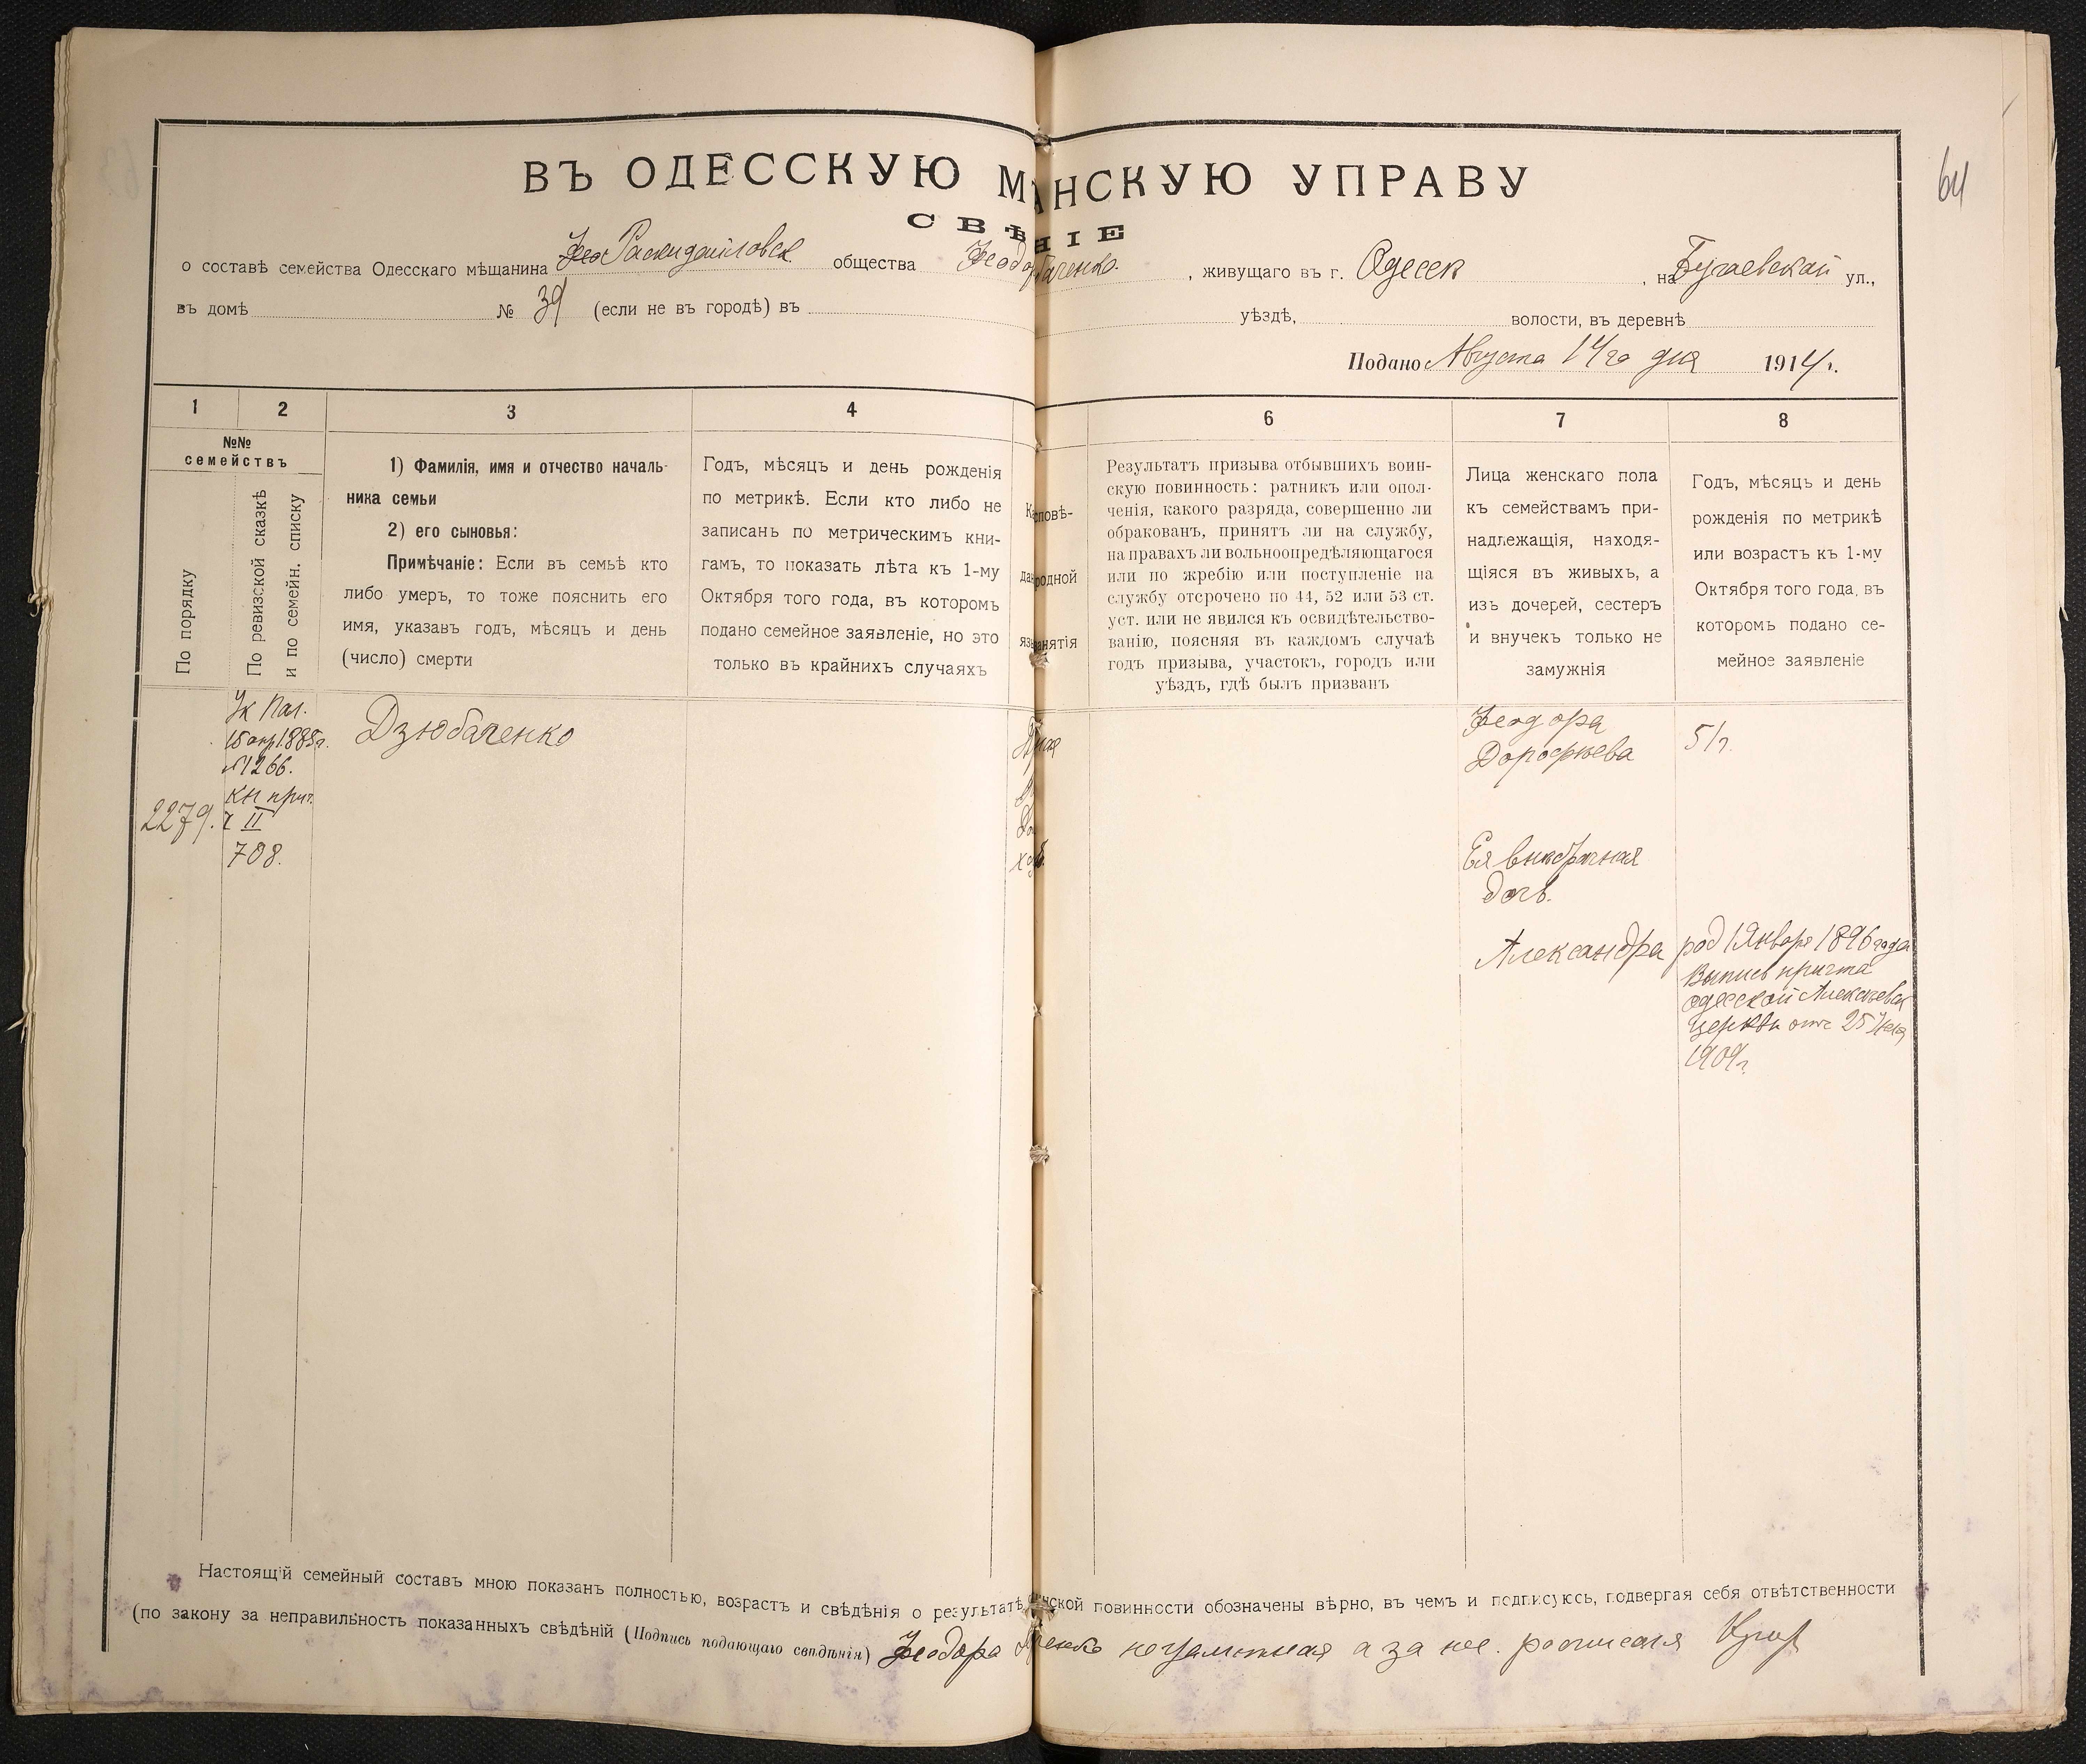 64
ВЪ ОДЕССКУЮ М АНСКУЮ УПРАВУ
СВѢ НІЕ
о составѣ семейства Одесскаго мѣщанина Раскидайловск общества Феодо баченко, живущаго въ г. Одессѣ, на Бугаевской ул.,
въ домѣ № 39 (если не въ городѣ) въ уѣздѣ, волости, въ деревнѣ
Подано Августа 14го дня 1914 г.
1
2
3
4
6
7
8
№№
семействъ
По порядку
По ревизской сказкѣ
и по семейн. списку
1) Фамилія, имя и отчество началь-
ника семьи
2) его сыновья:
Примѣчаніе: Если въ семьѣ кто
либо умеръ, то тоже пояснить его
имя, указавъ годъ, мѣсяцъ и день
(число) смерти
Годъ, мѣсяцъ и день рожденія
по метрикѣ. Если кто либо не
записанъ по метрическимъ кни-
гамъ, то показать лѣта къ 1-му
Октября того года, въ которомъ
подано семейное заявленіе, но это
только въ крайнихъ случаяхъ
повѣ-
родной
нятія
Результатъ призыва отбывшихъ воин-
скую повинность: ратникъ или опол-
ченія, какого разряда, совершенно ли
обракованъ, принятъ ли на службу,
на правахъ ли вольноопредѣляющагося
или по жребію или поступленіе на
службу отсрочено по 44, 52 или 53 ст.
уст. или не явился къ освидѣтельство-
ванію, поясняя въ каждомъ случаѣ
годъ призыва, участокъ, городъ или
уѣздъ, гдѣ былъ призванъ
Лица женскаго пола
къ семействамъ при-
надлежащія, находя-
щіяся въ живыхъ, а
изъ дочерей, сестеръ
и внучекъ только не
замужнія
Годъ, мѣсяцъ и день
рожденія по метрикѣ
или возрастъ къ 1-му
Октября того года, въ
которомъ подано се-
мейное заявленіе
2279.
Ук Пал.
15 апр 1885г.
№1266.
кн прич.
ч II
708.
Дзюбаченко
Феодора
Дорофѣева
51 г.
Ея внѣбрачная
дочь.
Александра
род 1 Января 1896 года
Выпись причта
одесской Алексѣевск
Церкви отъ 25
1909г.
Настоящій семейный составъ мною показанъ полностью, возрастъ и свѣдѣнія о результатѣ нской повинности обозначены вѣрно, въ чемъ и подписуюсь, подвергая себя отвѣтственности
(по закону за неправильность показанныхъ свѣдѣній (Подпись подающаго свѣдѣнія) Феодора ченко неграмотная а за нее росписался